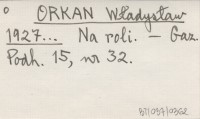 ORKAN Władysław
1927... Na roli. – Gaz.
Podh. 15, nr 32.
BT/037/0362